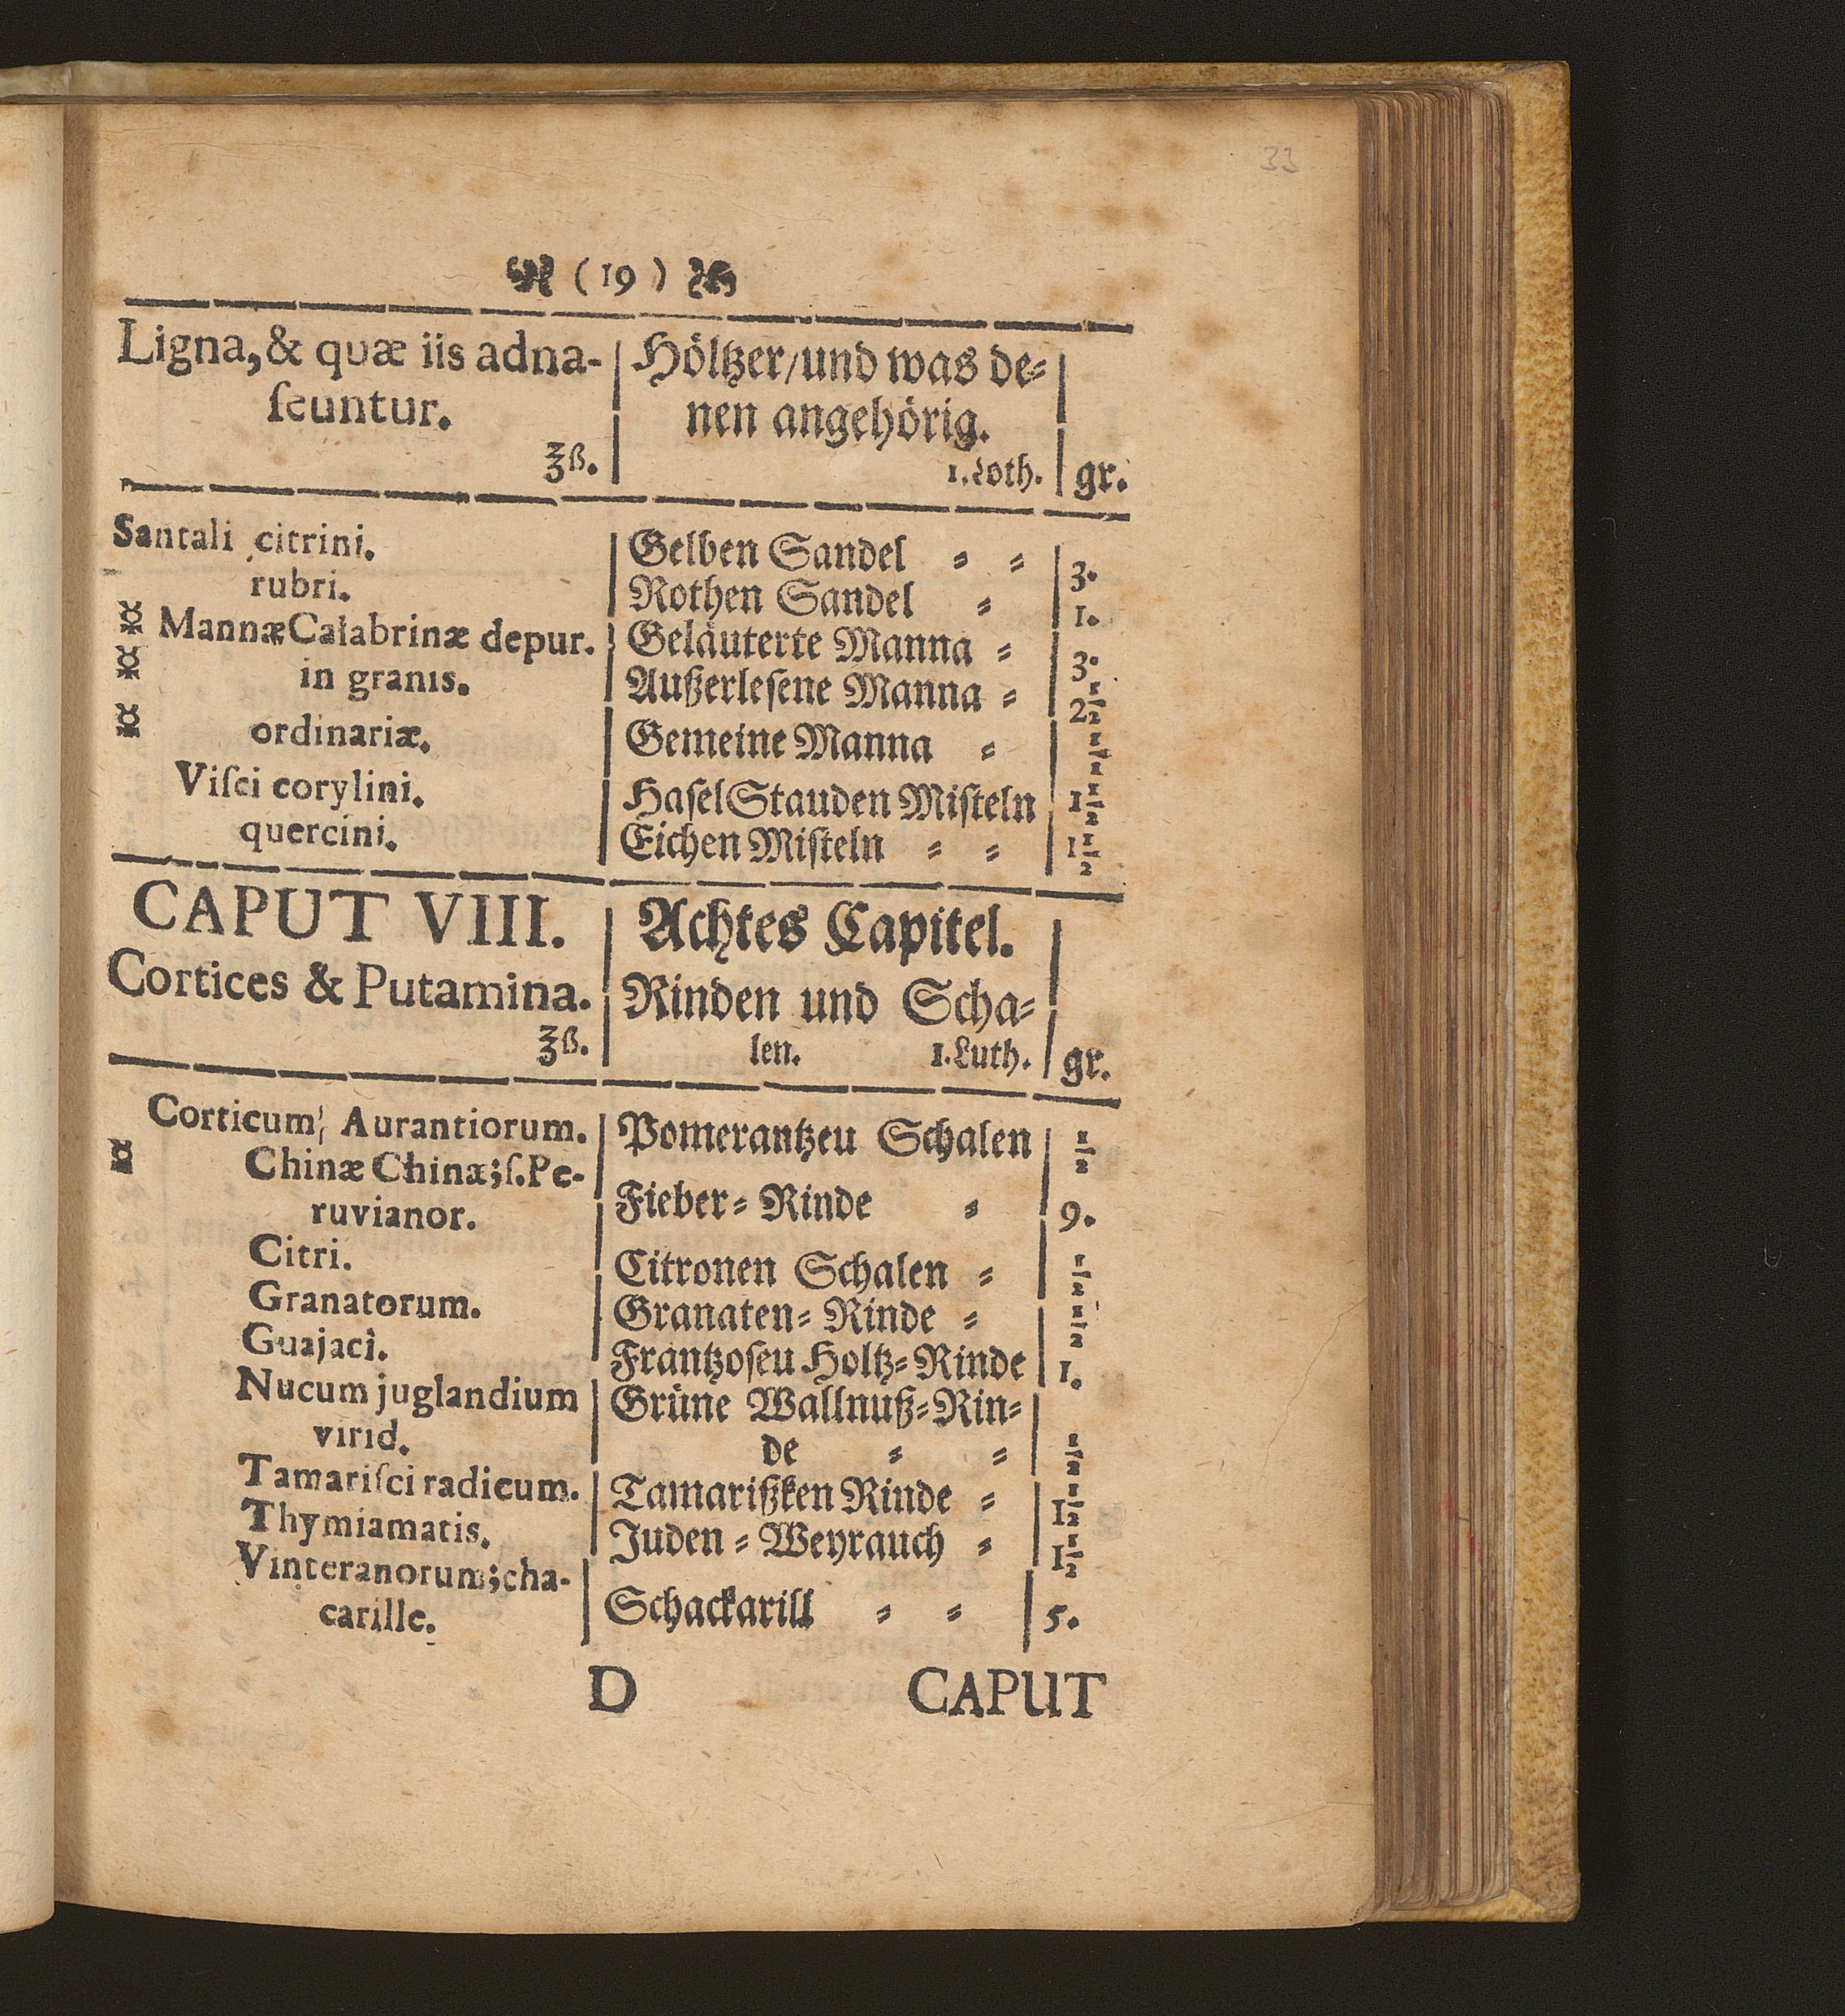 33
( 19 )
Ligna, & quæ iis adna- Höltzer/und was de⸗
ſcuntur. nen angehörig.
℥ß. 1. Loth. gr.
Santali citrini. Gelben Sandel ⸗ ⸗ 3.
rubri. Rothen Sandel ⸗ 1.
Mannæ Calabrinæ depur. Geläuterte Manna ⸗ 3.
in granis. Außerleſene Manna ⸗ 2½
ordinariæ. Gemeine Manna ⸗
Viſci corylini. Haſel Stauden Miſteln 1½
quercini. Eichen Miſteln ⸗ ⸗ 1½
CAPUT VIII. Achtes Capitel.
Cortices & Putamina. Rinden und Scha⸗
℥ß. len. 1. Luth. gr.
Corticum Aurantiorum. Pomerantzeu Schalen ½
Chinæ Chinæ; ſ. Pe-
ruvianor. Fieber⸗Rinde ⸗ 9.
Citri. Citronen Schalen ⸗ ½
Granatorum. Granaten⸗Rinde ⸗ ½
Guajaci. Frantzoſeu Holtz⸗Rinde 1.
Nucum juglandium Grüne Wallnuß⸗Rin⸗
virid. de ⸗ ⸗ ½
Tamariſci radicum. Tamarißken Rinde ⸗ 1½
Thymiamatis. Juden⸗Weyrauch ⸗ 1½
Vinteranorum; cha-
carille. Schackarill ⸗ ⸗ 5.
D CAPUT